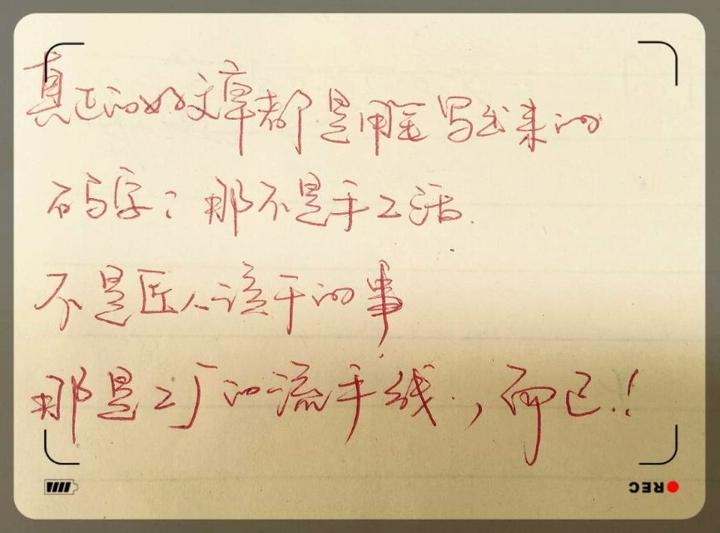 真正的好文章都是用笔写出来的
码字？那不是手工活.
不是匠人该干的事
那是工厂的流手线，而已！
REC